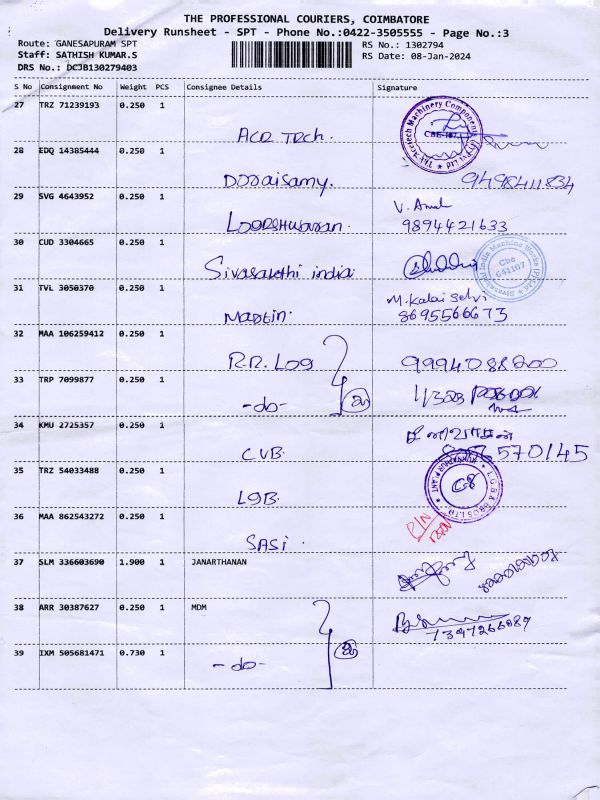 THE PROFESSIONAL COURIERS, COIMBATORE
Delivery Runsheet - SPT - Phone No.:0422-3505555 - Page No.:3
Route: GANESAPURAM SPT
RS No.: 1302794
Staff: SATHISH KUMAR.S
RS Date: 08-Jan-2024
DRS No.: DCJB130279403
S No Consignment No Weight PCS Consignee Details Signature
27 TRZ 71239193 0.250 1
ACR Tech.
28 EDQ 14385444 0.250 1
Doraisamy. 9498411834
29 SVG 4643952 0.250 1
V.
Logeshwaran. 9894421633
30 CUD 3304665 0.250 1
Cbe
641107
Sivasakthi india
31 TVL 3050370 0.250 1
M. Kalai Selvi
Martin. 8695566673
32 MAA 106259412 0.250 1
R.R. LOG 9994088200
33 TRP 7099877 0.250 1
-do-
34 KMU 2725357 0.250 1
CVB. 570145
35 TRZ 54033488 0.250 1
LGB.
36 MAA 862543272 0.250 1
SASI.
37 SLM 336603690 1.900 1 JANARTHANAN
38 ARR 30387627 0.250 1 MDM
39 IXM 505681471 0.730 1
-do-